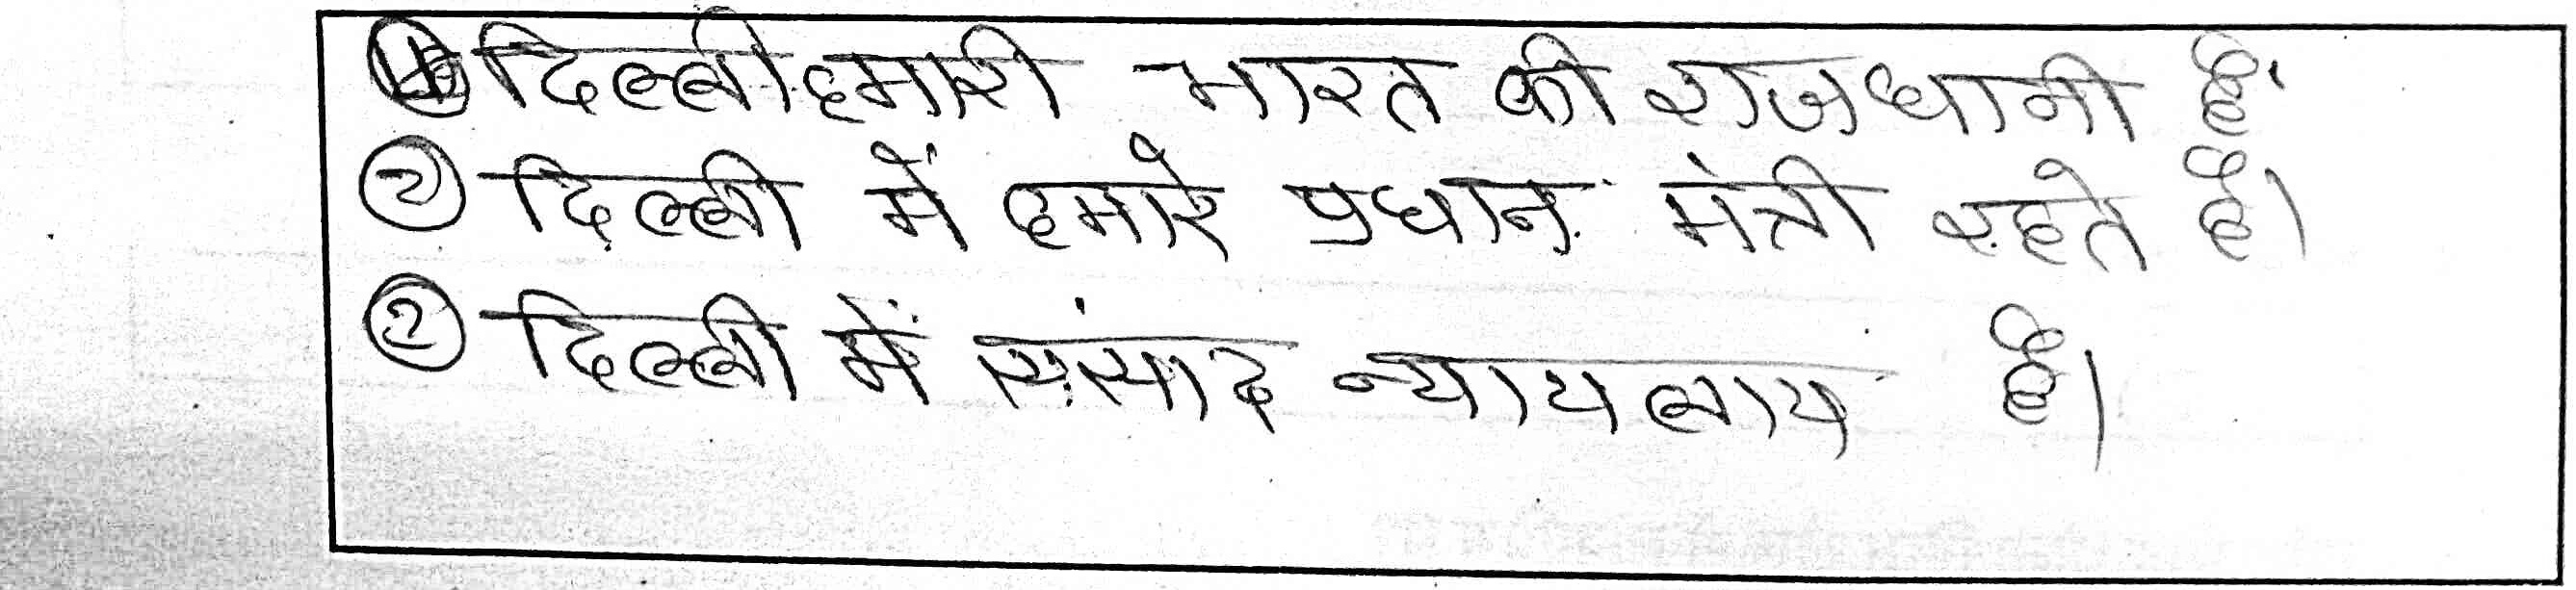 ① दिल्ली हमारी भारत की राजधानी है
② दिल्ली में हमारे प्रधान मंत्री रहते है।
② दिल्ली में संसाद न्यायलाय है।